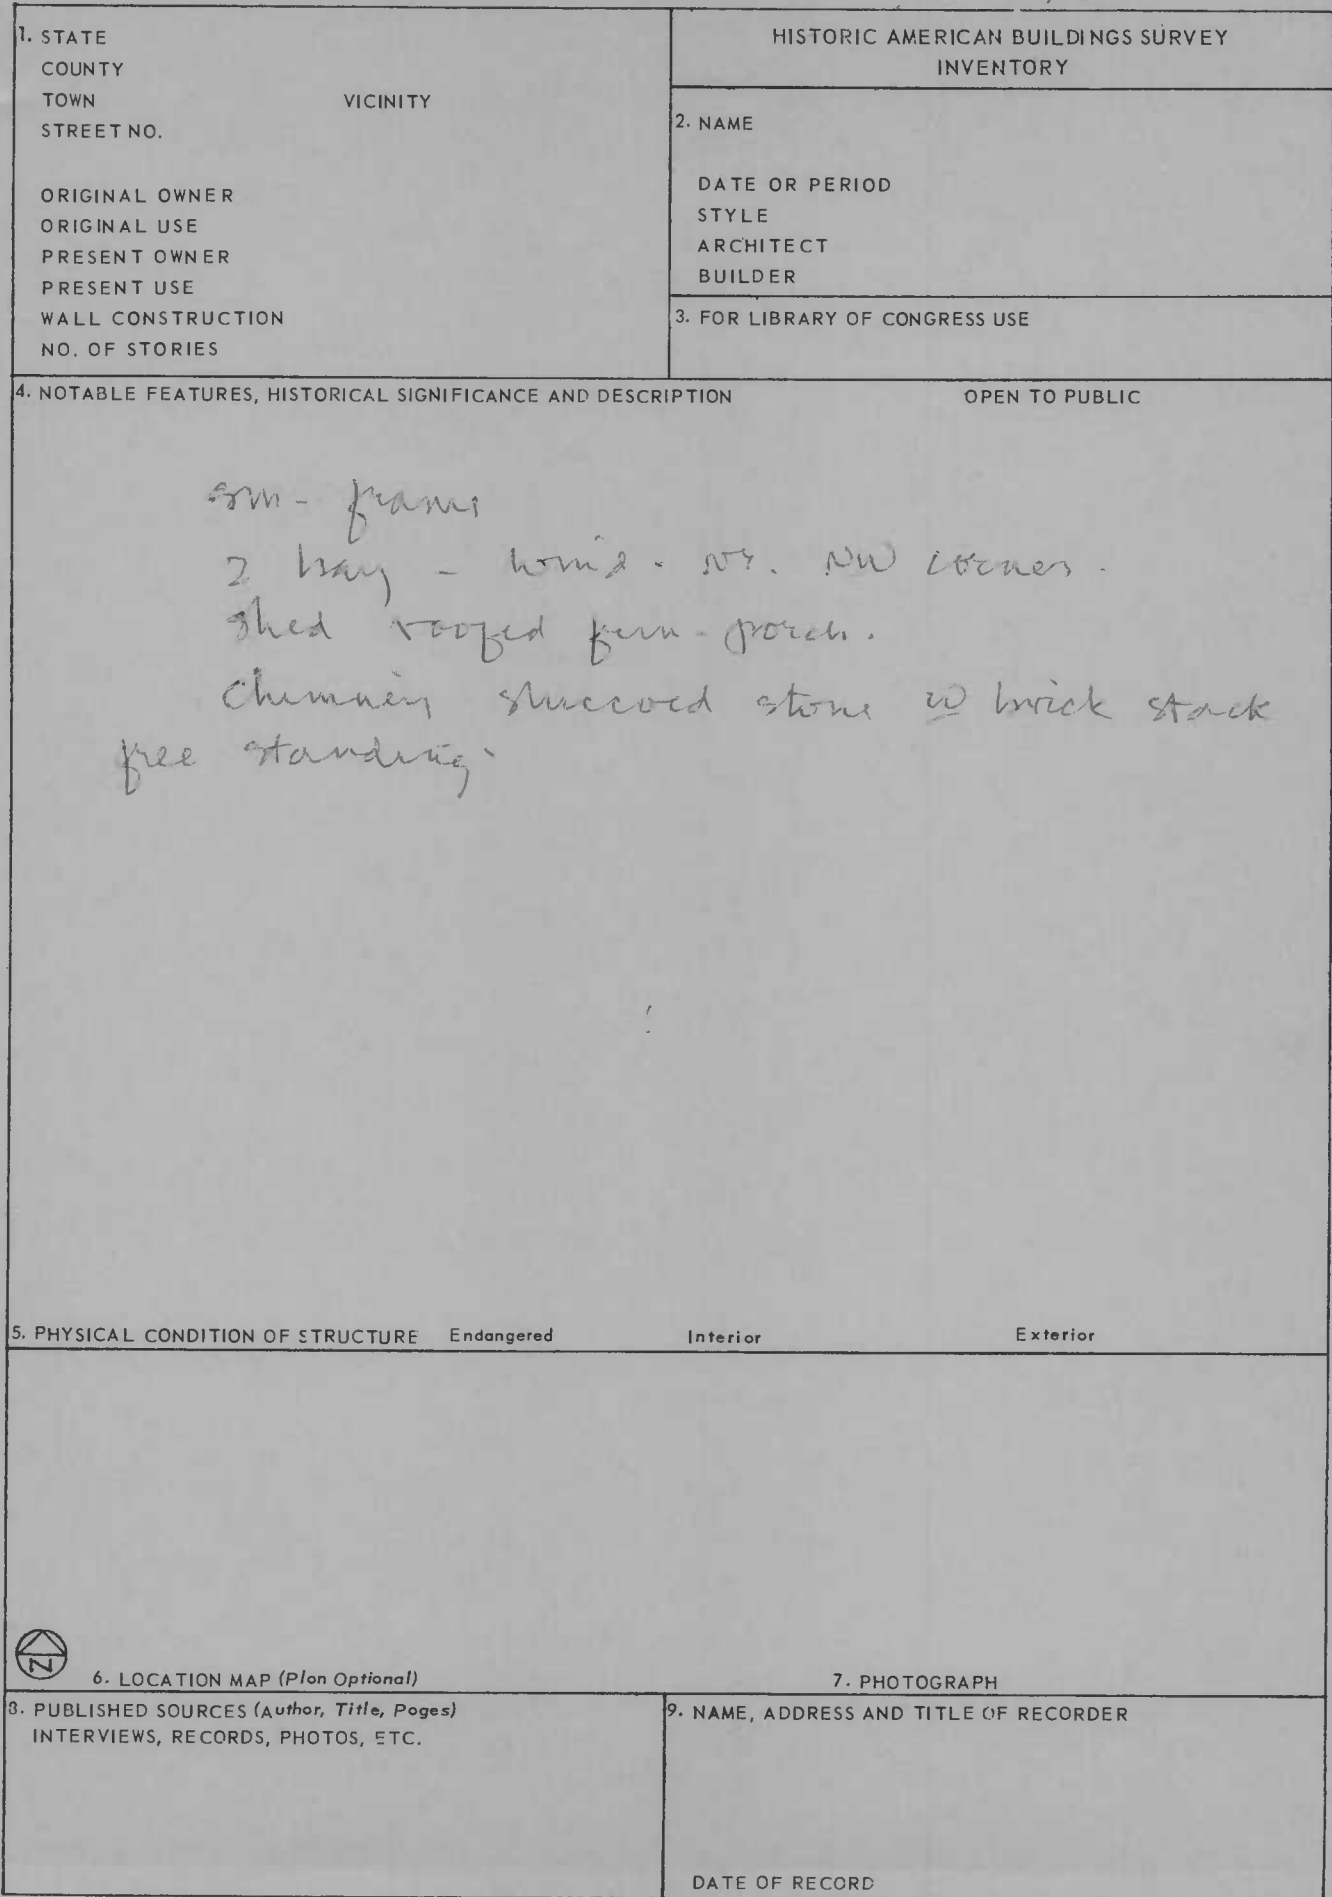 1. STATE
COUNTY
TOWN VICINITY
STREET NO.
ORIGINAL OWNER
ORIGINAL USE
PRESENT OWNER
PRESENT USE
WALL CONSTRUCTION
NO. OF STORIES
HISTORIC AMERICAN BUILDINGS SURVEY
INVENTORY
2. NAME
DATE OR PERIOD
STYLE
ARCHITECT
BUILDER
3. FOR LIBRARY OF CONGRESS USE
4. NOTABLE FEATURES, HISTORICAL SIGNIFICANCE AND DESCRIPTION OPEN TO PUBLIC
sm - frame
2 bay - NW corner.
Shed roofed porch.
Chimney stuccoed stone w brick stack
free standing.
5. PHYSICAL CONDITION OF STRUCTURE Endangered Interior Exterior
N
6. LOCATION MAP (Plan Optional)
7. PHOTOGRAPH
8. PUBLISHED SOURCES (Author, Title, Pages)
INTERVIEWS, RECORDS, PHOTOS, ETC.
9. NAME, ADDRESS AND TITLE OF RECORDER
DATE OF RECORD